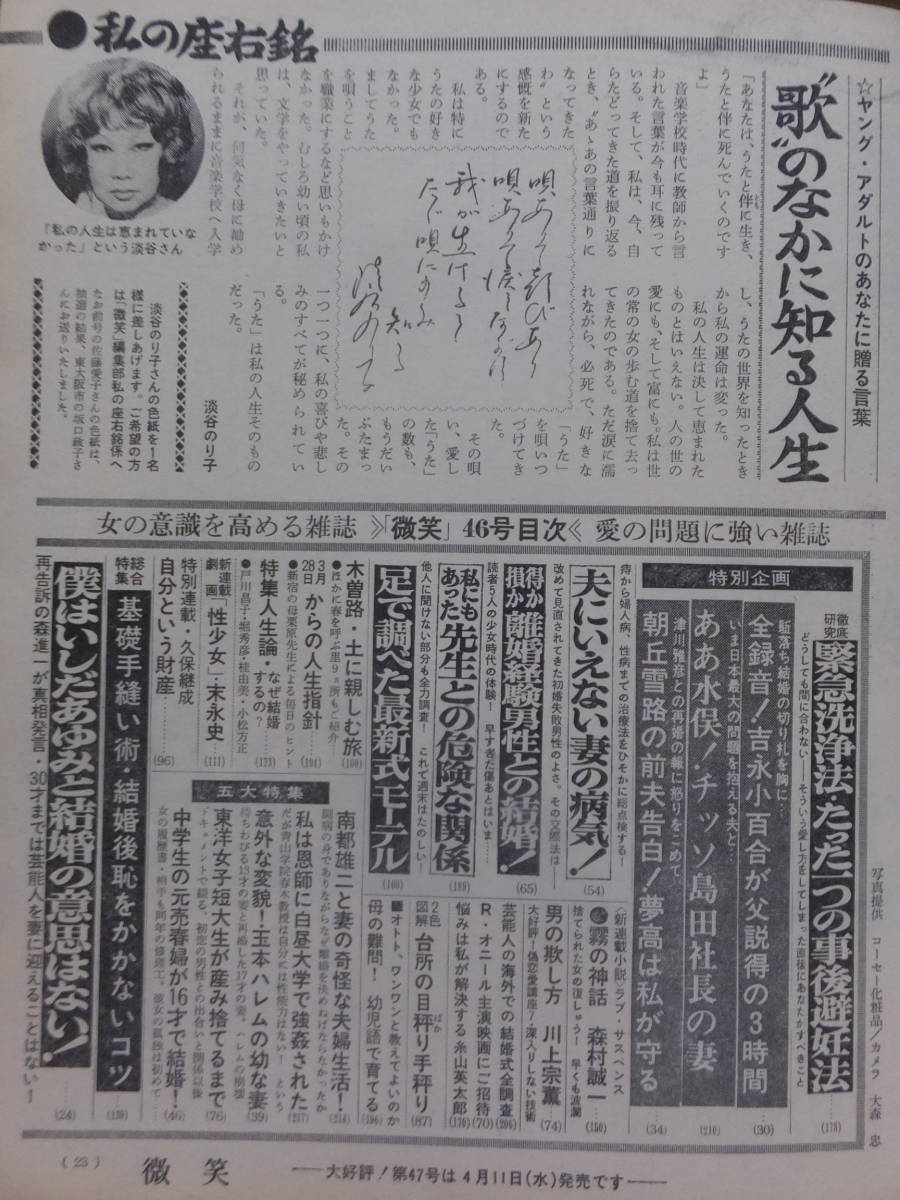 ●私の座右銘
☆ヤング・アダルトのあなたに贈る言葉
“歌”のなかに知る人生
「あなたは、うたと伴に生き、
うたと伴に死んでいくのです
よ」
音楽学校時代に教師から言
われた言葉が今も耳に残って
いる。そして、私は、今、自
らたどってきた道を振り返る
とき、“あゝあの言葉通りに
なってきた
わ”という
感慨を新た
にするので
ある。
私は特に
うたの好き
な少女でも
なかった。
ましてうた
を唄うこと
を職業にするなど思いもかけ
なかった。むしろ幼い頃の私
は、文学をやっていきたいと
思っていた。
それが、何気なく母に勧め
られるままに音楽学校へ入学
し、うたの世界を知ったとき
から私の運命は変った。
私の人生は決して恵まれた
ものとはいえない。人の世の
愛にも、そして富にも。私は世
の常の女の歩む道を捨て去っ
てきたのである。ただ涙に濡
れながら、必死で、好きな
「うた」
を唄いつ
づけてき
た。
その唄
い、愛し
た「うた」
の数も、
もうだい
ぶたまっ
た。その
一つ一つに、私の喜びや悲し
みのすべてが秘められてい
る。
「うた」は私の人生そのもの
だった。
淡谷のり子
唄ありて歓びあり
唄ありて涙ながす
我が生ける
たゞ唄にのみ
知る
淡谷のり子
「私の人生は恵まれていな
かった」という淡谷さん
淡谷のり子さんの色紙を1名
様に差しあげます。ご希望の方
は「微笑」編集部私の座右銘係へ
なお前号の佐藤愛子さんの色紙は、
抽選の結果、東大阪市の坂口政子さ
んにお送りいたしました。
女の意識を高める雑誌》「微笑」46号目次《愛の問題に強い雑誌
特別企画
徹底研究
緊急洗浄法・たった一つの事後避妊法
どうしても間に合わない——そういう愛し方をしてしまった直後にあなたがすべきこと
(178)
駈落ち結婚の切り札を胸に…
全録音！吉永小百合が父説得の3時間
(30)
いま日本最大の問題を抱える夫と…
ああ水俣！チッソ島田社長の妻
(210)
津川雅彦との再婚の報に怒りをこめて、
朝丘雪路の前夫告白！夢高は私が守る
(34)
痔から婦人病、性病までの治療法をひそかに総点検する！
夫にいえない妻の病気！
(54)
改めて見直されてきた初婚失敗男性のよさ。その交際法は
得か損か離婚経験男性との結婚！
(65)
読者5人の少女時代の体験！　早すぎた傷あとはいま…
私にもあった先生との危険な関係
(188)
他人に聞けない部分も全力調査！　これで週末はたのしい！
足で調べた最新式モーテル
(160)
木曽路・土に親しむ旅
●ほかに春を呼ぶ里9ヵ所もご紹介
(100)
3月28日からの人生指針
●新宿の母栗原先生による毎日のヒント
(194)
特集人生論・なぜ結婚するの？
●戸川昌子・堀秀彦・桂由美・小松方正
(173)
新連載劇画「性少女」・末永史
(111)
特別連載・久保継成
自分という財産
(96)
総合特集
基礎手縫い術・結婚後恥をかかないコツ
(130)
僕はいしだあゆみと結婚の意思はない！
再告訴の森進一が真相発言・30才までは芸能人を妻に迎えることはない！
(24)
〈新連載小説〉ラブ・サスペンス
霧の神話　森村誠一
(150)
捨てられた女の復しゅう！　早くも波瀾
男の欺し方　川上宗薫
(74)
大好評！偽恋愛講座7・深入りしない技術
芸能人の海外での結婚式全調査
(206)
R・オニール主演映画にご招待
(70)
悩みは私が解決する・糸山英太郎
(170)
2色図解　台所の目秤り手秤り
(87)
■オトト、ワンワンと教えてよいのか
母の難問！　幼児語で育てる
(106)
五大特集
南都雄二と妻の奇怪な夫婦生活！
(214)
闘病の身でありながらなぜ離婚を決めねばならなかったか
私は恩師に白昼大学で強姦された
(217)
だが青山学院春木教授は自分には性能力はない！という
意外な変貌！玉本ハレムの幼な妻
(39)
待ちわびる13才の妻と再婚した17才の妻。ハレムの崩壊
東洋女子短大生が産み捨てるまで
(76)
ドキュメントで綴る、初恋の男性との出合いと関係以後
中学生の元売春婦が16才で結婚！
(46)
女の履歴書・相手も同年の修理工。彼女の孤独は初めて
写真提供　コーセー化粧品／カメラ　大森　忠
(23)
微笑
——大好評！第47号は4月11日(水)発売です——